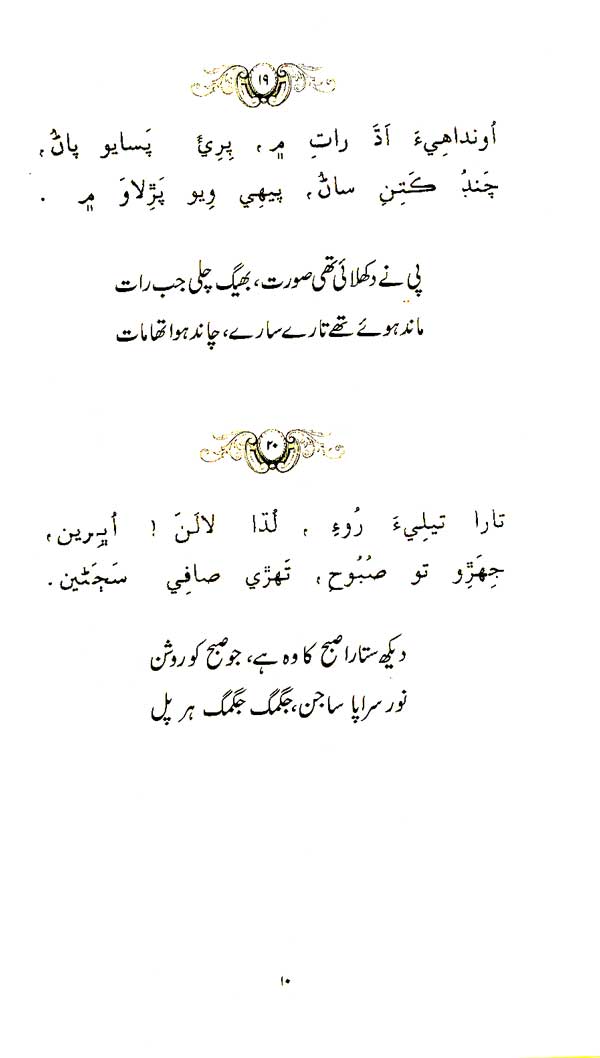 ۱۹
اُونداهِيءَ اَڌَ راتِ ۾، پِرِيَّ پَسايو پاڻُ،
چَنڊُ ڪَتِنِ ساڻُ، پيهِي وِيو پَڙِلاوَ ۾ .
پی نے دکھلائی تھی صورت، بھیگ چلی جب رات
ماند ہوئے تھے تارے سارے، چاند ہوا تھا مات
۲۰
تارا تيلِيءَ رُوءِ ، لُڌا لالَنَ ! اُڀِرين،
جِهَڙِو تو صُبُوحِ، تَهڙي صافِي سَڄَڻين.
دیکھ ستارا صبح کا وہ ہے، جو صبح کو روشن
نور سراپا ساجن، جگمگ جگمگ ہر پل
۱۰